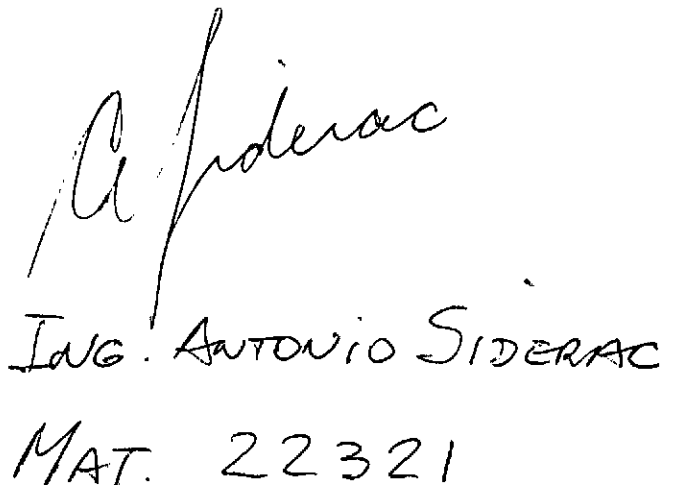 A Siderac
ING. ANTONIO SIDERAC
MAT. 22321